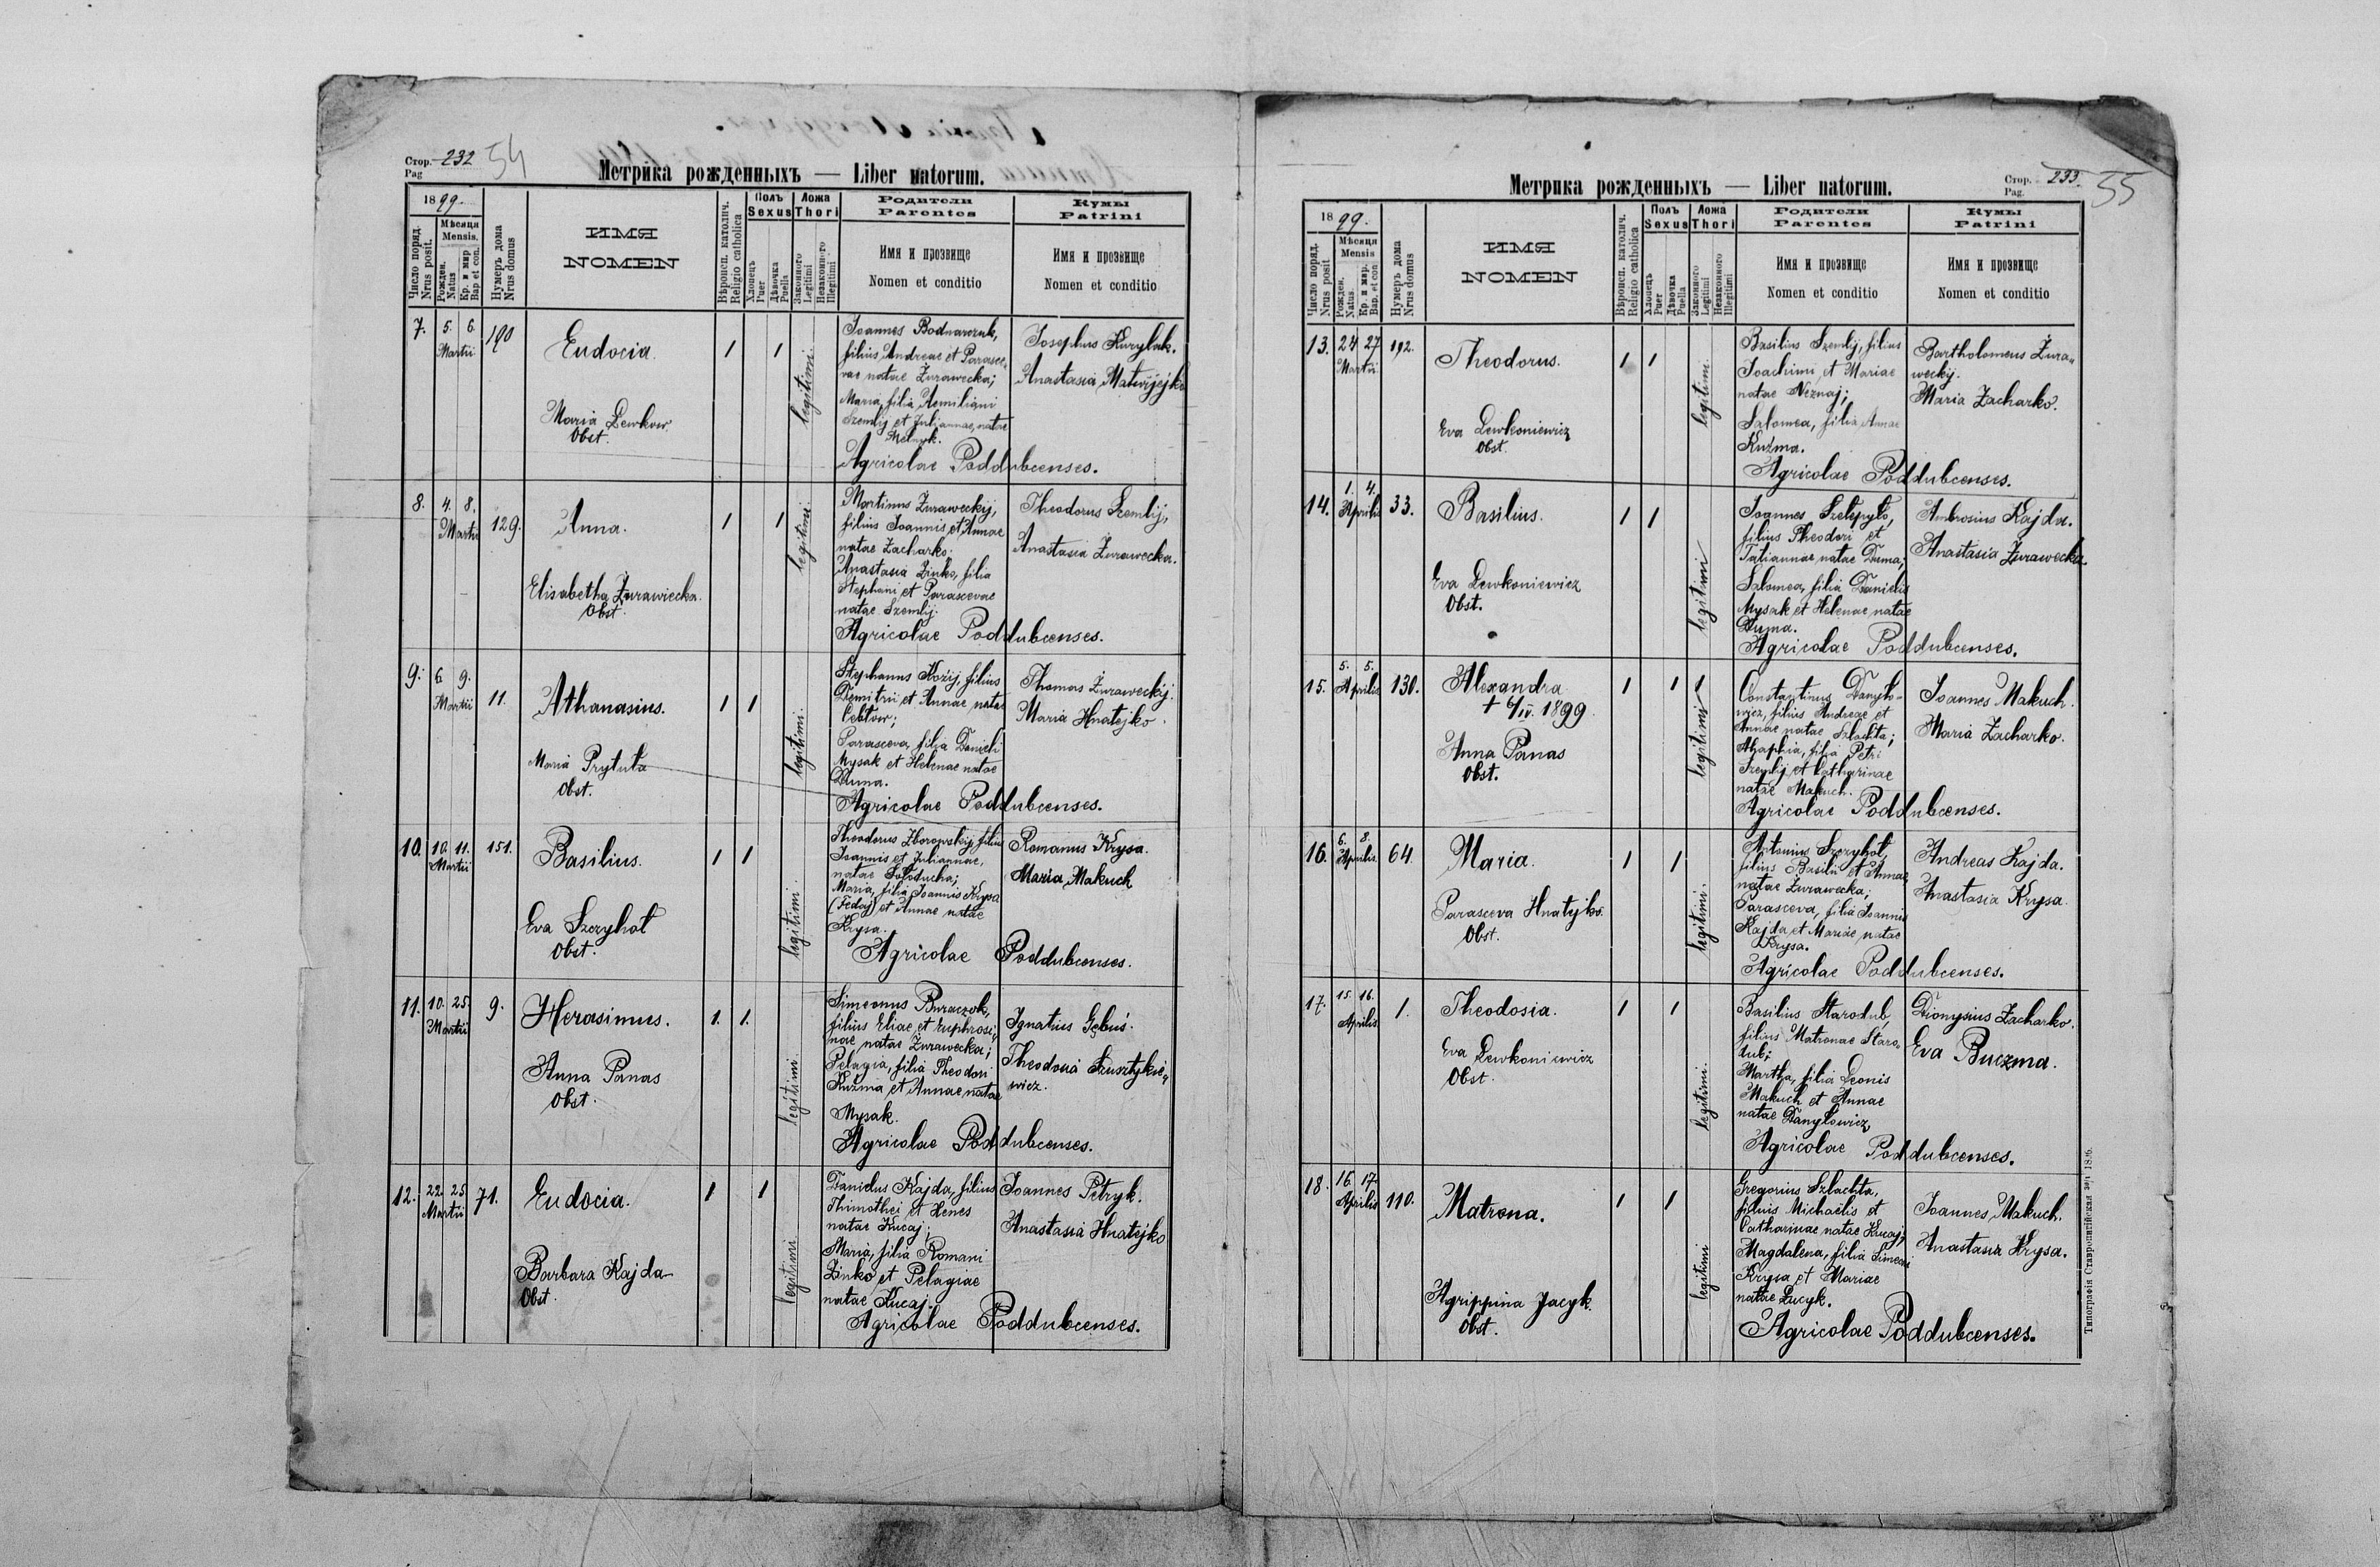 Стор. 232 54
Pag
Метрика рожденныхъ — Liber natorum.
1899.
Число поряд. Nrus posit.
Мѣсяця Mensis.
Рожден. Natus
Кр. и мир Bap et con.
Нумеръ дома Nrus domus
ИМЯ
NOMEN
Вѣроисп. католич. Religio catholica
Полъ Sexus
Хлопецъ Puer
Дѣвочка Puella
Ложа Thori
Законного Legitimi
Незаконного Illegitimi
Родители
Parentes
Имя и прозвище
Nomen et conditio
Кумы
Patrini
Имя и прозвище
Nomen et conditio
7. 5. 6. Martii 190
Eudocia.
Maria Lewkow
Obst.
1 1 legitimi.
Joannes Bodnarczuk,
filius Andreae et Parasce-
vae natae Żurawecka;
Maria, filia Aemiliani
Szemlij et Juliannae, natae
Melnyk.
Agricolae Poddubcenses.
Josephus Kurylak.
Anastasia Matwijejko
8. 4. 8. Martii 129.
Anna.
Elisabetha Żurawiecka.
Obst.
1 1 legitimi.
Martinus Żuraweckij,
filius Joannis et Annae
natae Zacharko.
Anastasia Zinko, filia
Stephani et Parascevae
natae Szemlij.
Agricolae Poddubcenses.
Theodorus Szemlij,
Anastasia Żurawecka.
9. 6. 9. Martii 11.
Athanasius.
Maria Prytuła
Obst.
1 1 legitimi.
Stephanus Kozij, filius
Demitrii et Annae natae
Cebtow;
Parasceva, filia Danieli
Mysak et Helenae natae
Duma.
Agricolae Poddubcenses.
Thomas Żuraweckij.
Maria Hnatejko.
10. 10. 11. Martii 151.
Basilius.
Eva Szeryhot
Obst.
1 1 legitimi.
Theodorus Zborowskij, filius
Joannis et Juliannae,
natae Sołoducha;
Maria, filia Joannis Krysa
(Fedaj) et Annae natae
Krysa.
Agricolae Poddubcenses.
Romanus Krysa.
Maria Makuch
11. 10. 25. Martii 9.
Herasimus.
Anna Panas
Obst.
1. 1. legitimi
Simeonus Buraczok,
filius Eliae et Euphrosi-
nae, natae Żurawecka;
Pelagia, filia Theodori
Kuźma et Annae natae
Mysak.
Agricolae Poddubcenses.
Ignatius Gębuś.
Theodosia Szusztykie-
wicz.
12. 22. 25. Martii 71.
Eudocia.
Barbara Kajda
Obst.
1 1 legitimi
Danielus Kajda, filius
Thimothei et Xenes
natae Kucaj;
Maria, filia Romani
Zinko et Pelagiae
natae Kucaj.
Agricolae Poddubcenses.
Joannes Petryk.
Anastasia Hnatejko
Метрика рожденныхъ — Liber natorum.
Стор. 233. 55
Pag.
1899.
Число поряд. Nrus posit
Мѣсяця Mensis
Рожден. Natus.
Кр. и мир. Bap. et con
Нумеръ дома Nrus domus
ИМЯ
NOMEN
Вѣроисп. католич. Religio catholica
Полъ Sexus
Хлопецъ Puer
Дѣвочка Puella
Ложа Thori
Законного Legitimi
Незаконного Illegitimi
Родители
Parentes
Имя и прозвище
Nomen et conditio
Кумы
Patrini
Имя и прозвище
Nomen et conditio
13. 24 27 Martii 192.
Theodorus.
Eva Lewkoniewicz
Obst.
1 1 legitimi.
Basilius Szemlij, filius
Joachimi, et Mariae
natae Neznaj;
Salomea, filia Annae
Kuźma.
Agricolae Poddubcenses.
Bartholomeus Żura-
weckij.
Maria Zacharko.
14. 1. 4. Aprilis 33.
Basilius.
Eva Lewkoniewicz
Obst.
1 1 legitimi
Joannes Szelepyło,
filius Theodori et
Tatiannae natae Duma;
Salomea, filia Danielis
Mysak et Helenae natae
Duma.
Agricolae Poddubcenses.
Ambrosius Kajda.
Anastasia Żurawecka.
15. 5. 5. Aprilis 130.
Alexandra.
+ 6/IV. 1899.
Anna Panas
Obst.
1 1 1 legitimi
Constantinus Danyło-
wicz, filius Andreae et
Annae natae Szlachta;
Ahaphia, filia Petri
Szemlij et Catharinae
natae Makuch.
Agricolae Poddubcenses.
Joannes Makuch.
Maria Zacharko.
16. 6. 8. Aprilis. 64.
Maria.
Parasceva Hnatyko.
Obst.
1 1 legitimi.
Antonius Szeryhot,
filius Basilii et Annae
natae Żurawecka;
Parasceva, filia Joannis
Kajda et Mariae natae
Krysa.
Agricolae Poddubcenses.
Andreas Kajda.
Anastasia Krysa.
17. 15. 16. Aprilis. 1.
Theodosia.
Eva Lewkoniewicz
Obst.
1 1 legitimi.
Basilius Starodub,
filius Matronae Staro-
dub;
Martha, filia Leonis
Makuch et Annae
natae Danyłowicz
Agricolae Poddubcenses.
Dionysius Zacharko.
Eva Buczma.
18. 16. 17. Aprilis 110.
Matrona.
Agrippina Jacyk.
Obst.
1 1 legitimi
Gregorius Szlachta,
filius Michaelis et
Catharinae natae Kucaj;
Magdalena, filia Simeoni
Krysa et Mariae
natae Lucyk.
Agricolae Poddubcenses.
Joannes Makuch.
Anastasia Krysa.
Типографія Ставропигійская